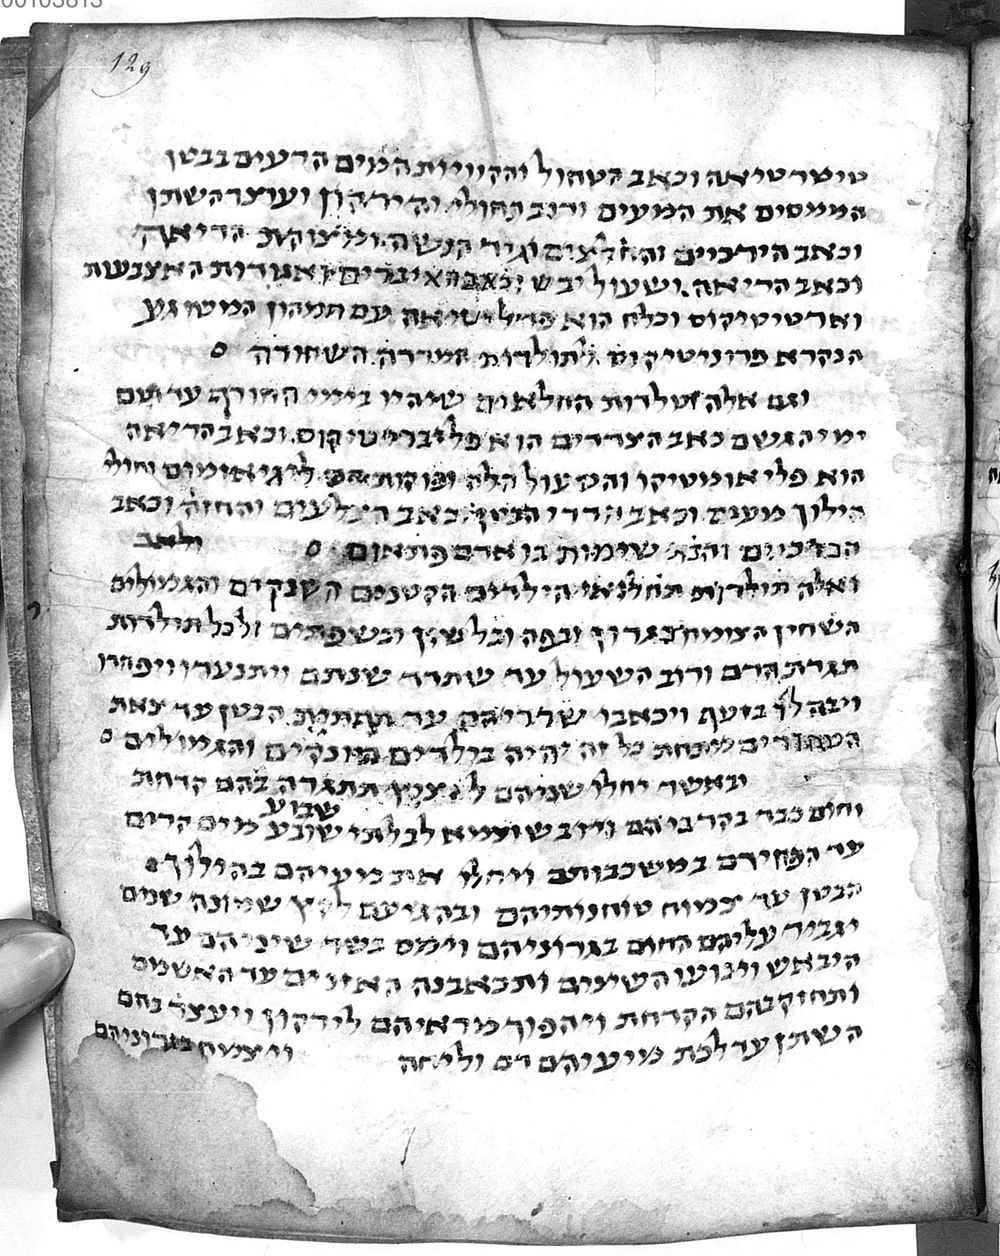 00103813
129
טיטרטיאה וכאב הטחול והקוויות המים הרעים בבטן
הממסים את המעים ורוב תחולי והירקון ועוצר השתן
וכאב הירכיים והחלצים וגיד הנשה ומצוקת הריאה
וכאב הריאה ושעול יבש וכאב האיברים ואגודות האצבעות
וארטיטיקוס וכלח הוא עם תמהון המשוגע
הנקרא פרוניטיקוס ותולדות המררה השחורה
וגם אלה תולדות החלאים שיהיו בימי החורף עד תום
ימי הגשם כאב הצדדים הוא פליבריטיקוס וכאב הריאה
הוא פליאומטיקו והשעול הלה ופוקות ליגיאומוס וחולי
הילוך מעגם וכאב הדרי הבטן כאב הצלעים והחזה וכאב
הברכיים שימות בו אדם פתאום ולאב
ואלה תולדות תחלואי הילדים הקטנים השנקים והגמולים
השחין הצומח בגרון ובפה ובלשון ובשפתים ולכל תולדות
תגרת הדם ורוב השעול עד שתדד שנתם ויתנערו ויפחדו
ויבהלו בזעף ויכאבו שדריהם עד תחתית הבטן עד צאת
הטחורים מתחת כל זה יהיה בילדים היונקים והגמולים
ובאשר יחלו שניהם לנצנץ תתגרה בהם קדחת
וחום כבד בקרביהם ויובש וצמא לבלתי שובע מים קרים
שבוע
עד הפחידם במשכבותם ויחלו את מעיהם בהילוך
הבטן עד צמוח טוחנותיהם ובהגיעם לקץ שמונה שנים
יגביר עליהם החום בגרוניהם וימס בשר שיניהם עד
היבאש וינועו השינים ותכאבנה האזנים עד האשמם
ותחזק בהם הקדחת ויהפוך מראיהם לירקון ויעצר בהם
השתן עד לכת מיעיהם דם וליחה ויצמח בגרוניהם